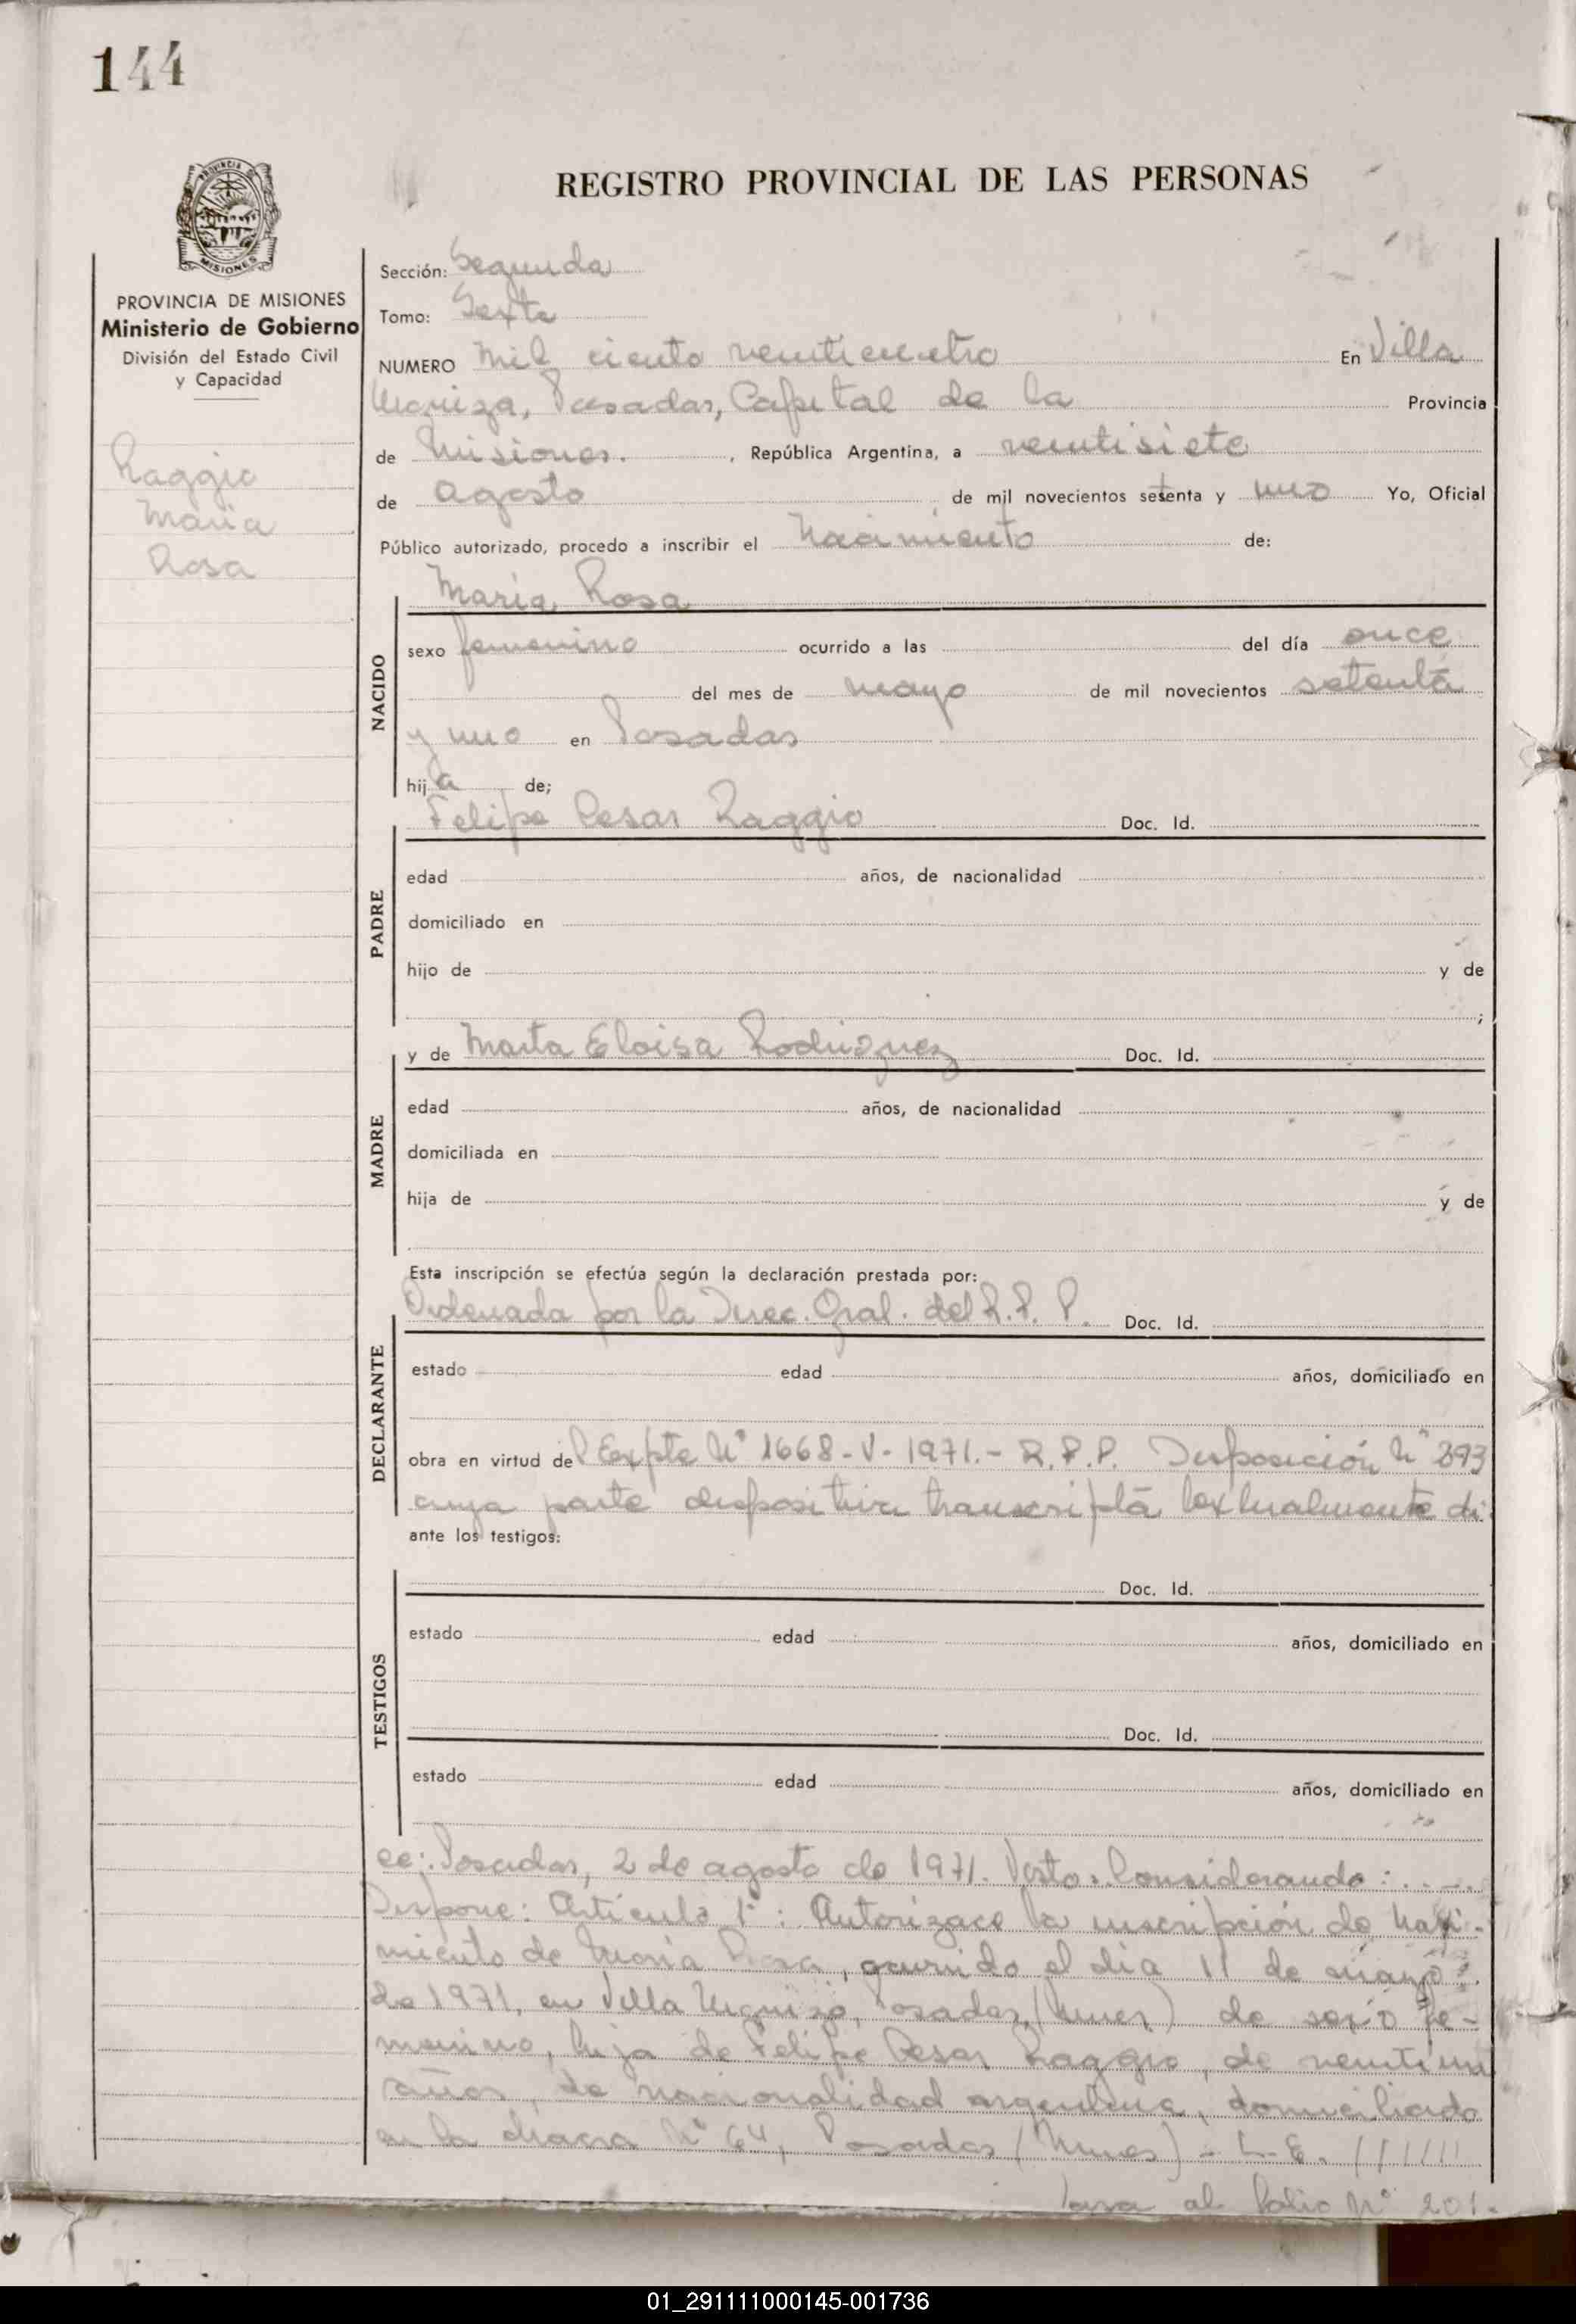 144
PROVINCIA
MISIONES
REGISTRO PROVINCIAL DE LAS PERSONAS
PROVINCIA DE MISIONES
Ministerio de Gobierno
División del Estado Civil
y Capacidad
Raggio
Maria
Rosa
Sección: Segunda
Tomo: Sexto
NUMERO Mil ciento veinticuatro En Villa
Urquiza, Posadas, Capital de la Provincia
de Misiones. , República Argentina, a veintisiete
de agosto de mil novecientos setenta y uno Yo, Oficial
Público autorizado, procedo a inscribir el Nacimiento de:
María Rosa
NACIDO
sexo femenino ocurrido a las del día once
del mes de mayo de mil novecientos setenta
y uno en Posadas
hija de;
Felipe Cesar Raggio Doc. Id.
PADRE
edad años, de nacionalidad
domiciliado en
hijo de y de
;
y de Marta Eloisa Rodriguez Doc. Id.
MADRE
edad años, de nacionalidad
domiciliada en
hija de y de
Esta inscripción se efectúa según la declaración prestada por:
Ordenada por la Direc. Gral. del R.P.P. Doc. Id.
DECLARANTE
estado edad años, domiciliado en
obra en virtud del Expte Nº 1668-V-1971.- R.P.P. Disposición Nº 393
cuya parte dispositiva transcripta textualmente di
ante los testigos:
Doc. Id.
TESTIGOS
estado edad años, domiciliado en
Doc. Id.
estado edad años, domiciliado en
ce: Posadas, 2 de agosto de 1971. Visto: Considerando:
Dispone: Artículo 1º: Autorizace la inscripción de Naci-
miento de María Rosa, ocurrido el día 11 de mayo
de 1971, en Villa Urquiza, Posadas (Mnes) de sexo fe-
menino, hija de Felipe Cesar Raggio, de veintiun
años, de nacionalidad argentina, domiciliado
en la chacra Nº 64, Posadas (Mnes) - L.E. //////
Pasa al folio Nº 201.
01_291111000145-001736